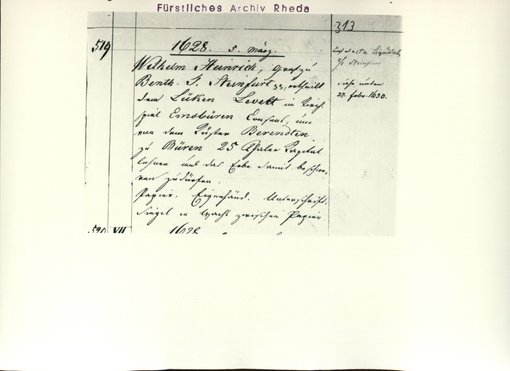 Fürstliches Archiv Rheda
313
519
1628. 5. März.
Wilhelm Heinrich, Graf zu
Benth. T. Steinfurt ertheilt
dem Lüken Levelt im Kirch
spiel Emsbüren Consens, um
von dem Küster Berendten
zu Büren 25 Thaler Kapital
lehnen und das Erbe damit beschwe,
ren zu dürfen.
Papier. Eigenhänd. Unterschrift
Siegel in Wachs zwischen Papier
siehe unten
27. Febr. 1630.
520 VII 1628